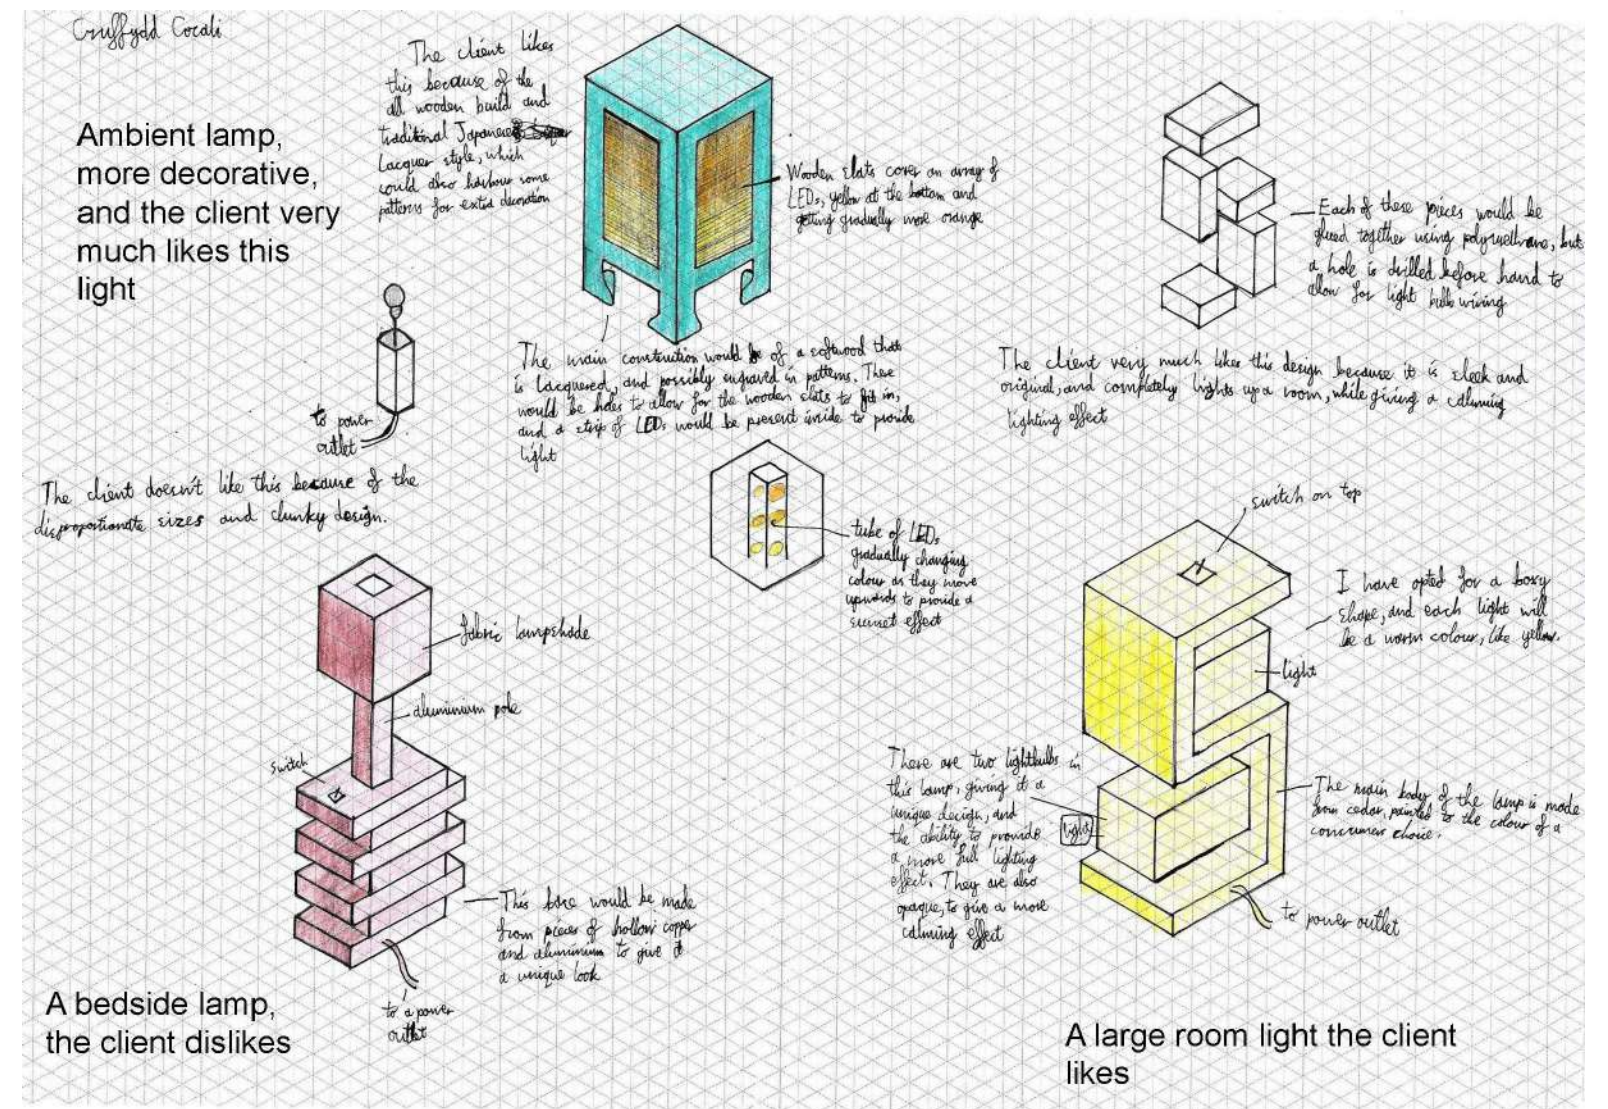 Gruffydd Cocali
Ambient lamp,
more decorative,
and the client very
much likes this
light
The client likes
this because of the
all wooden build and
traditional Japanese
Lacquer style, which
could also harbour some
patterns for extra decoration
Wooden slats cover an array of
LEDs, yellow at the bottom and
getting gradually more orange
Each of these pieces would be
glued together using polyurethane, but
a hole is drilled before hand to
allow for light bulb wiring
to power
outlet
The main construction would be of a softwood that
is lacquered, and possibly engraved in patterns. There
would be holes to allow for the wooden slats to fit in,
and a strip of LEDs would be present inside to provide
light
The client very much likes this design because it is sleek and
original, and completely lights up a room, while giving a calming
lighting effect
The client doesn't like this because of the
disproportionate sizes and clunky design.
tube of LEDs
gradually changing
colour as they move
upwards to provide a
sunset effect
switch on top
I have opted for a boxy
shape, and each light will
be a warm colour, like yellow.
light
fabric lampshade
aluminium pole
switch
There are two lightbulbs in
this lamp, giving it a
unique design, and
the ability to provide
a more full lighting
effect. They are also
opaque, to give a more
calming effect
light
The main body of the lamp is made
from cedar, painted to the colour of a
consumers choice.
This base would be made
from pieces of hollow copper
and aluminium to give it
a unique look
to power outlet
to a power
outlet
A bedside lamp,
the client dislikes
A large room light the client
likes